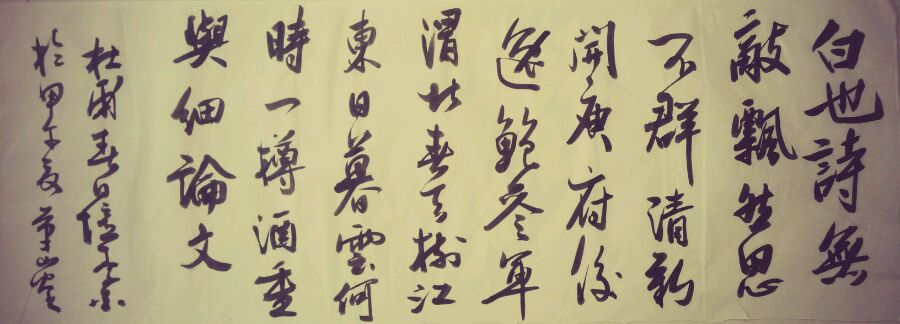 白也詩無
敵飄然思
不群清新
開庾府俊
逸鮑參軍
渭北春天樹江
東日暮雲何
時一樽酒重
與細論文
杜甫春日憶李白
於甲午夏